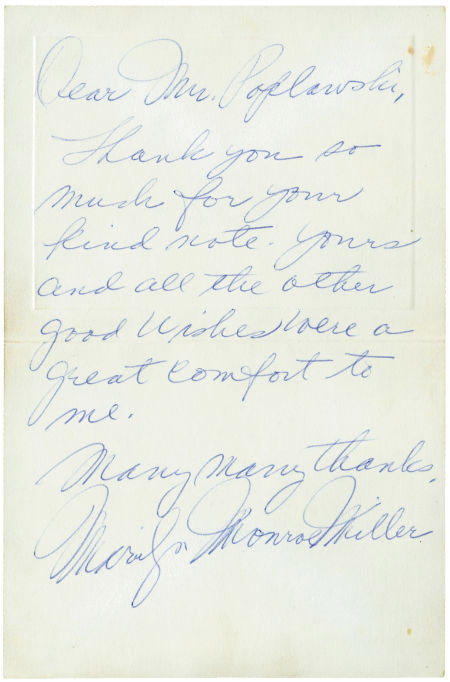 Dear Mr. Poplawski,
Thank you so
much for your
kind note. Yours
and all the other
good wishes were a
great comfort to
me.
Many many thanks,
Marilyn Monroe Miller